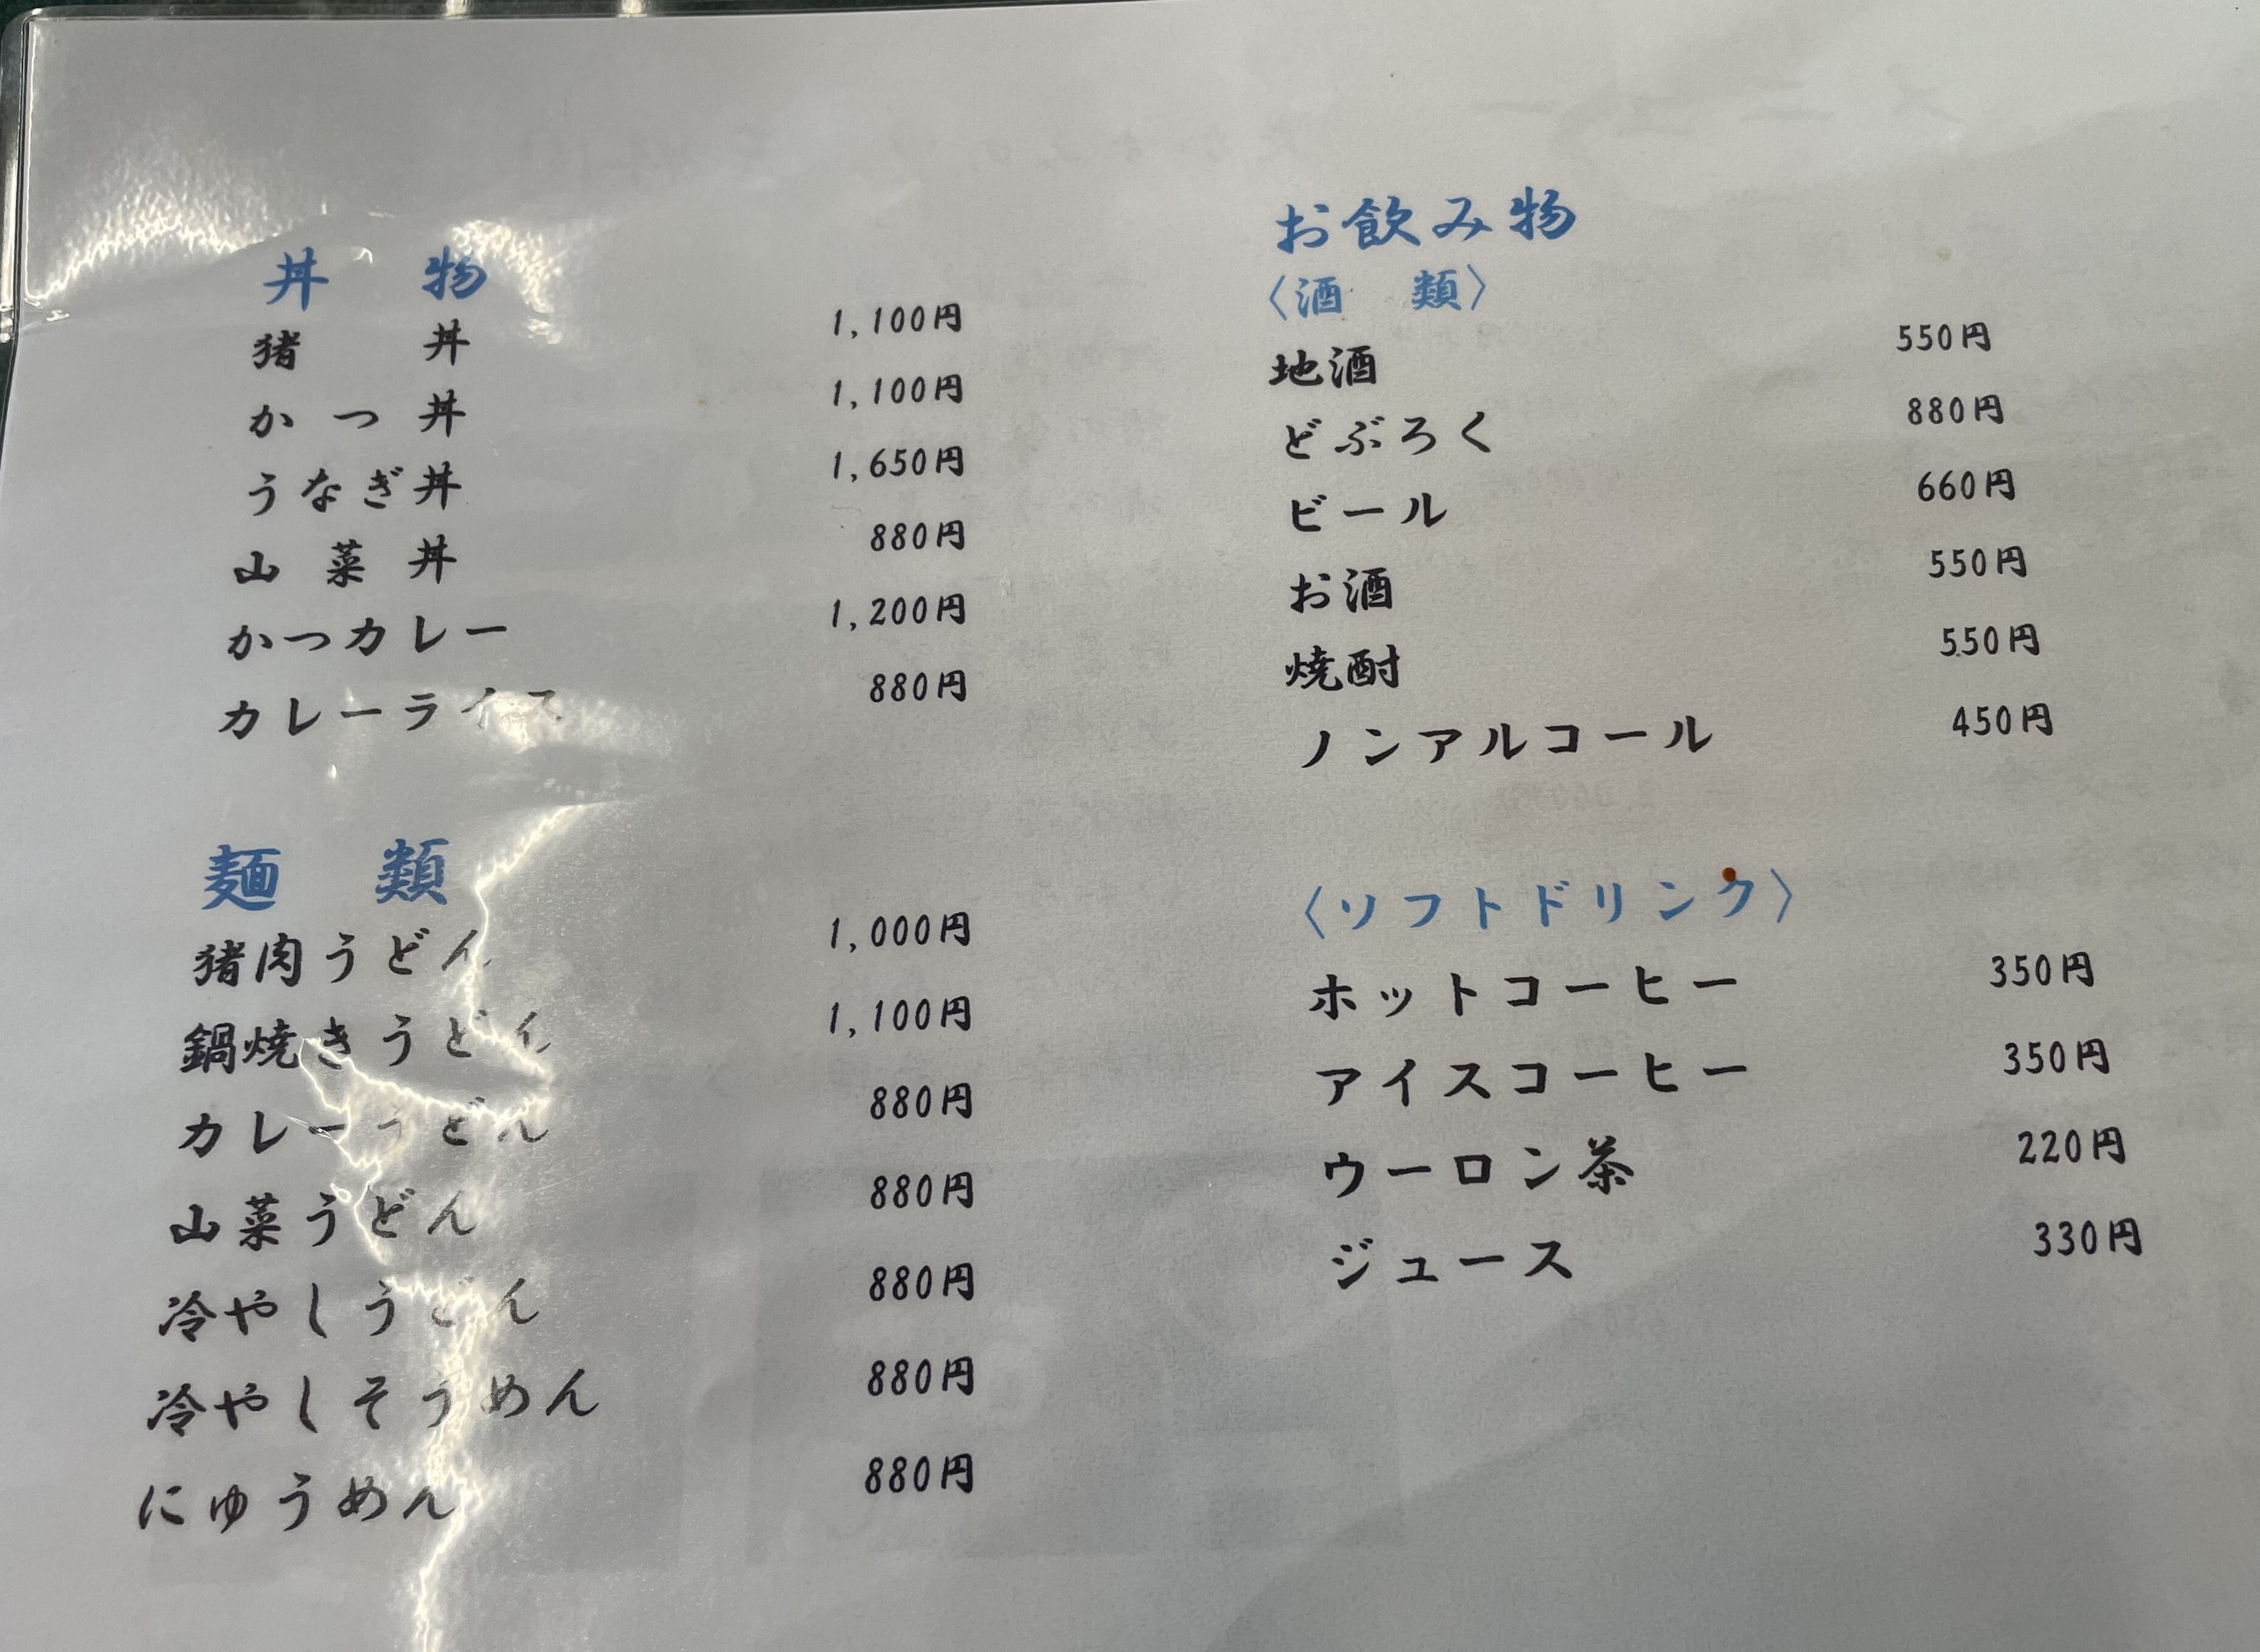 丼 物
猪 丼 1,100円
か つ 丼 1,100円
うなぎ丼 1,650円
山 菜 丼 880円
かつカレー 1,200円
カレーライス 880円
麺 類
猪肉うどん 1,000円
鍋焼きうどん 1,100円
カレーうどん 880円
山菜うどん 880円
冷やしうどん 880円
冷やしそうめん 880円
にゅうめん 880円
お飲み物
〈酒 類〉
地酒 550円
どぶろく 880円
ビール 660円
お酒 550円
焼酎 550円
ノンアルコール 450円
〈ソフトドリンク〉
ホットコーヒー 350円
アイスコーヒー 350円
ウーロン茶 220円
ジュース 330円